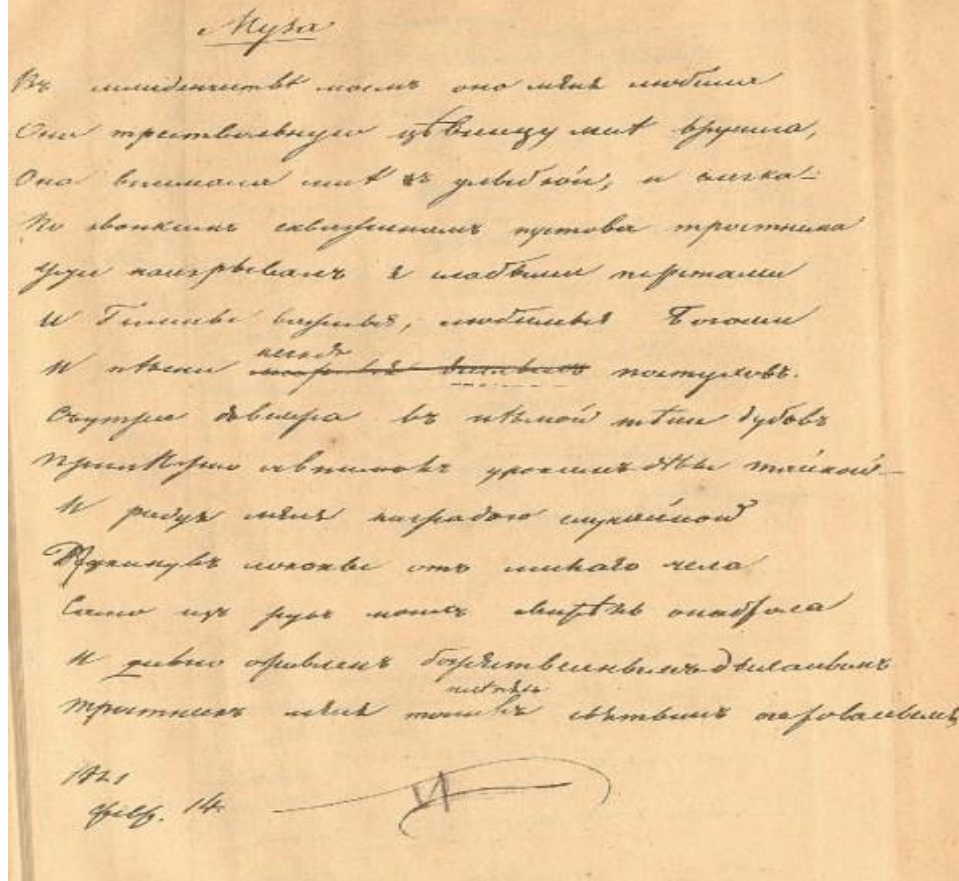 Муза
Въ младенчествѣ моемъ она меня любила
Она тресвольную цѣвницу мнѣ вручила,
Она внимала мнѣ съ улыбкой, и слегка
По звонкимъ скважинамъ пустова тростника
Ужъ наигрывалъ я слабыми перстами
И Гимны важные, любимые Богами
И пѣсни
постуховъ.
Съутра довечера въ нѣмой тѣни дубовъ
Прилѣжно внималъ урокамъ дѣвы тайной
И радуя меня наградою случайной
Откинувъ локоны отъ милаго чела
Сама изъ рукъ моихъ свирѣль она брала
И
оживленъ божественнымъ дыханьемъ
Тростникъ
святымъ очарованьемъ
1821
февр. 14